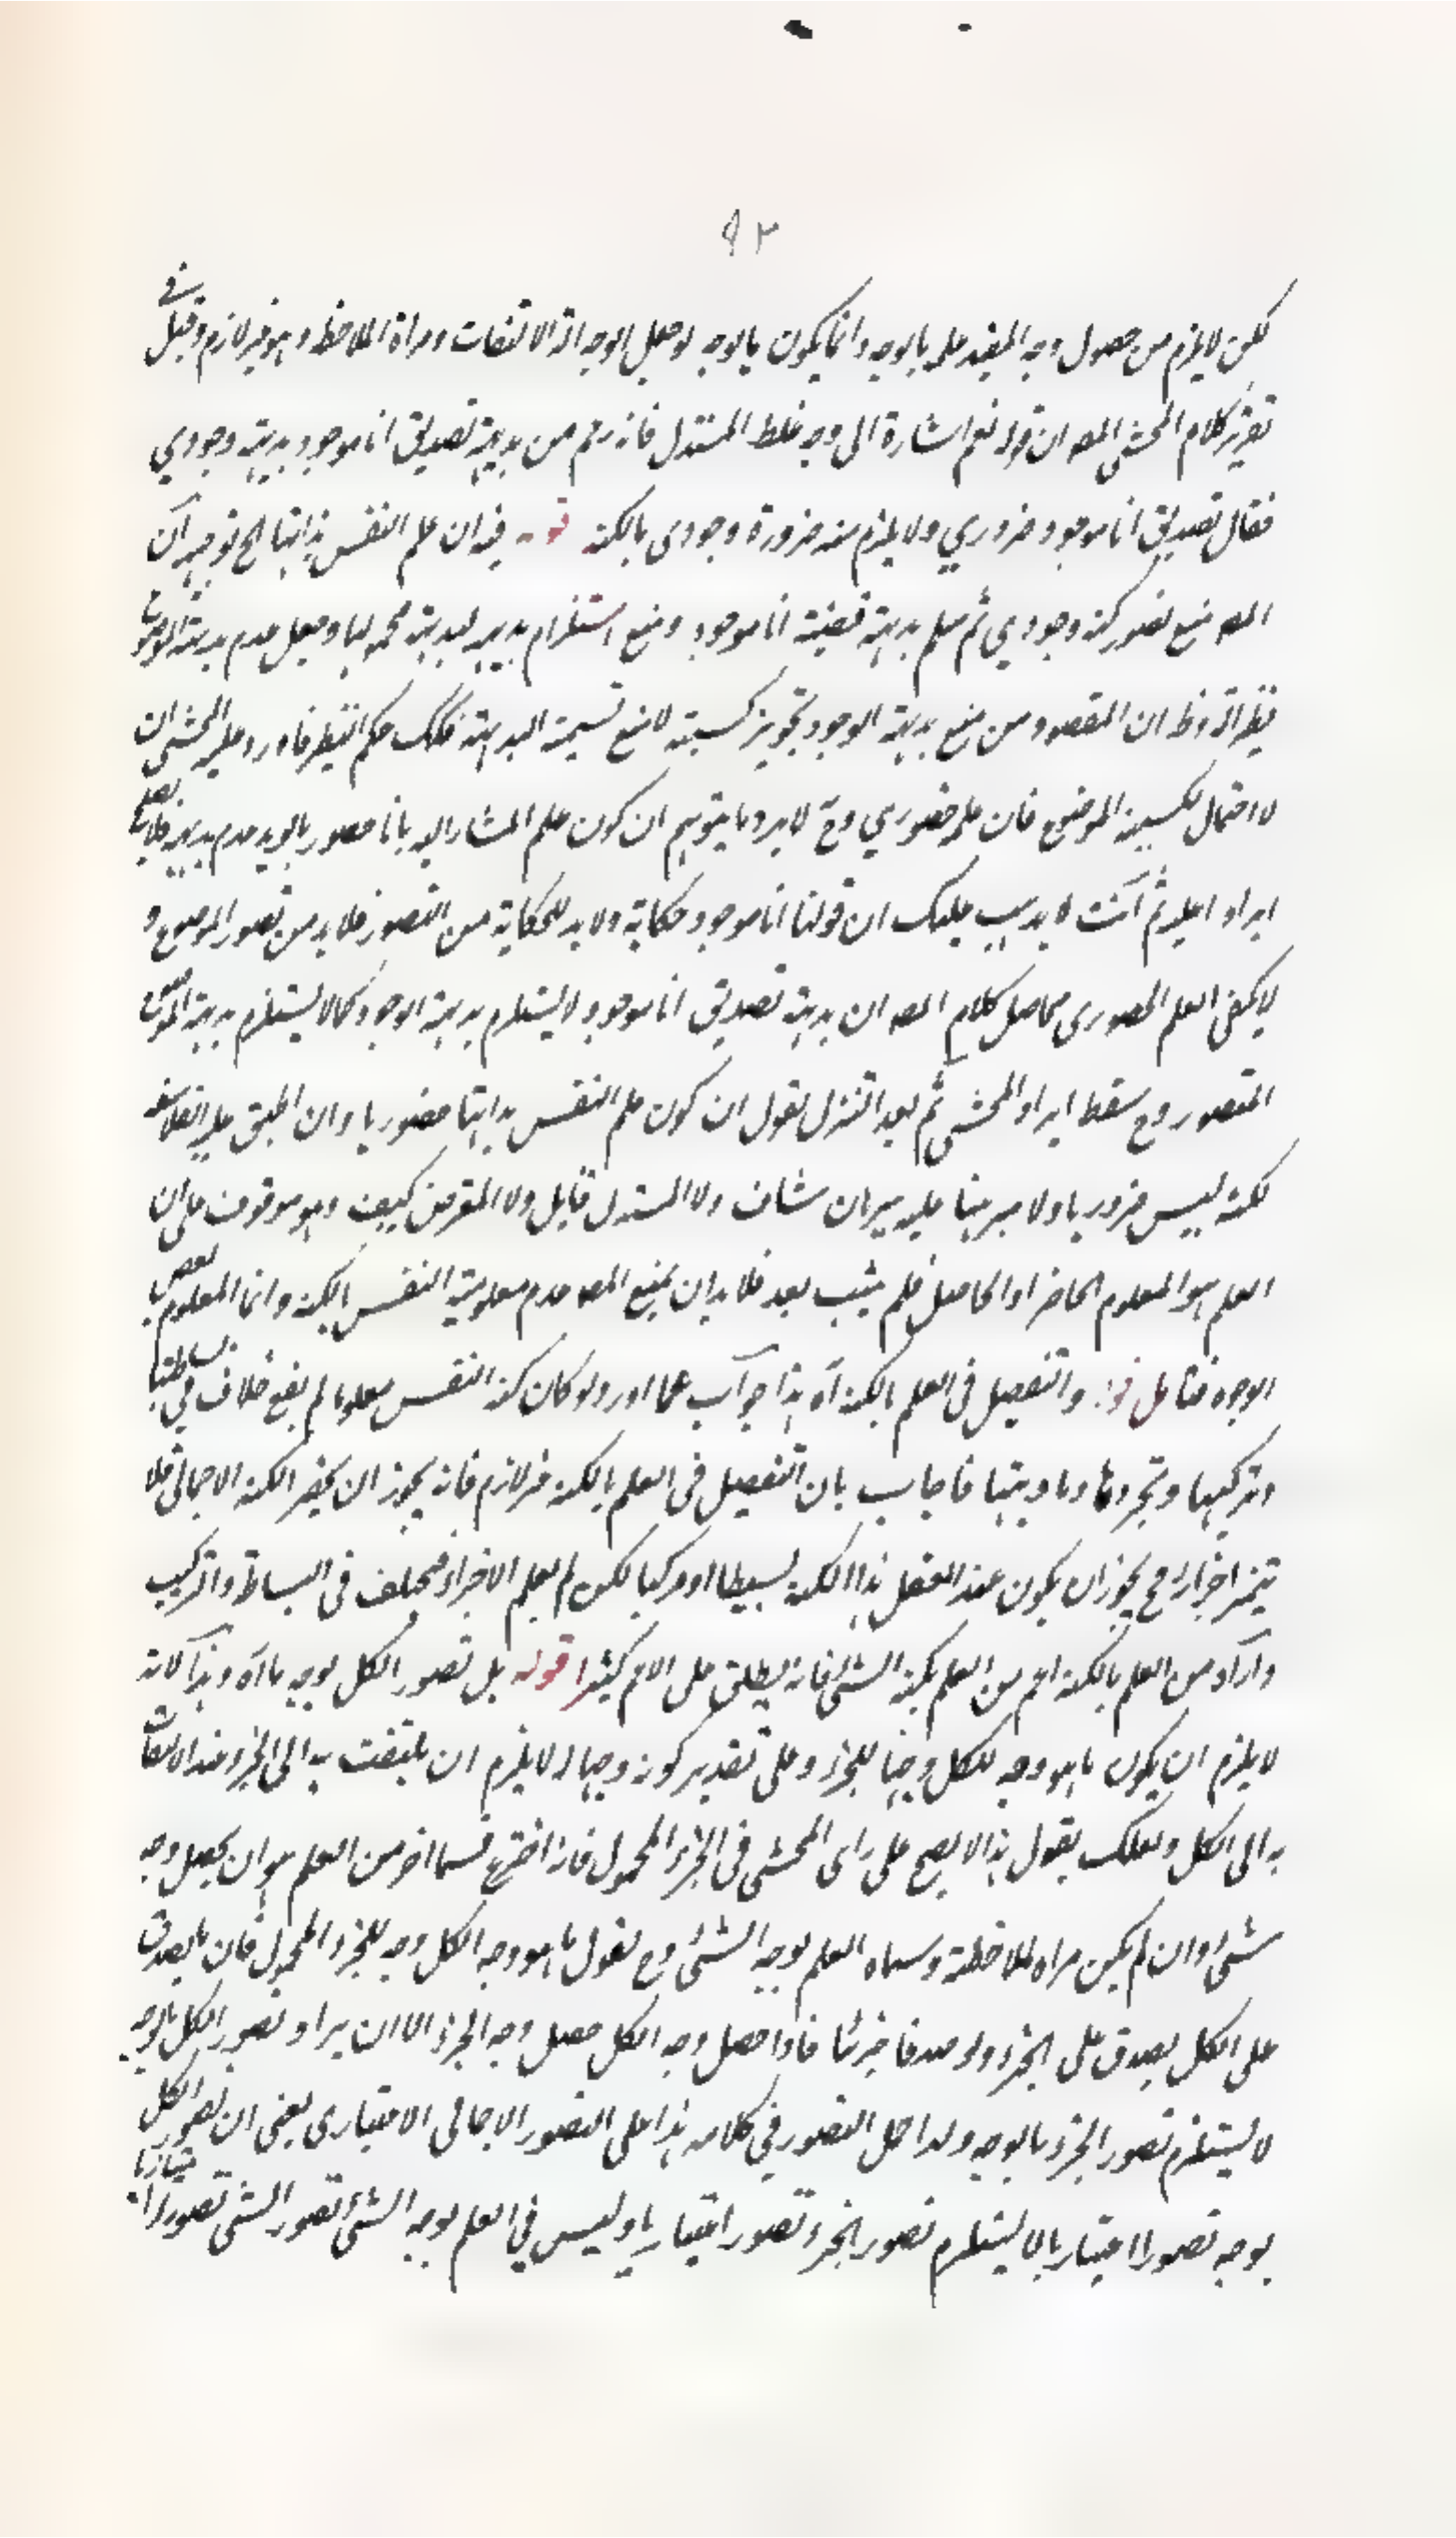 ٩٢
لكن لا يلزم من حصول وجه المقيد علمه بالوجه وانما يكون بالوجه لو جعل الوجه آلة الالتفات ومرآة الملاحظة وهو غير لازم وقيل في
تقرير كلام المحشي المص ان قوله نعم اشارة الى وجه غلط المستدل فانه زعم من بديهة تصديق انا موجود بديهة وجودي
فقال تصديق انا موجود ضروري ولا يلزم منه ضرورة وجودي بالكنه قوله فيه ان علم النفس بذاتها الخ توجيهه ان
المص منع تصور كنه وجودي ثم سلم بديهة قضية انا موجود ومنع استلزام بديهته لبديهة محمولها وجعل عدم بديهة الموضوع
نظيرا له وظ ان المقصود من منع بديهة الوجود تجويز كسبيته لا منع تسمية البديهة فكذلك حكم النظير فاورد عليه المحشي ان
لا احتمال لكسبية الموضوع فان علمه حضوري وح لا يرد ما يتوهم ان كون علم المشار اليه بانا حضوريا يؤيد عدم بديهته فلا يصلح
ايرادا عليه ثم انت لا يذهب عليك ان قولنا انا موجود حكاية ولا بد للحكاية من التصور فلا بد من تصور الموضوع و
لا يكفي العلم الحضوري فحاصل كلام المص ان بديهة تصديق انا موجود لا يستلزم بديهة الوجود كما لا يستلزم بديهة الموضوع
المتصور وح سقط ايراد المحشي ثم بعد التنزل نقول ان كون علم النفس بذاتها حضوريا وان اطبق عليه الفلاسفة
لكنه ليس ضروريا ولا مبرهنا عليه ببرهان شاف ولا المستدل قايل ولا المعترض كيف وهو موقوف على ان
العلم هو المعلوم الحاضر او الحاصل فلم يثبت بعد فلا بد ان يمنع المص عدم معلومية النفس بالكنه وانما المعلوم بعض
الوجوه فتامل قوله والتفصيل في العلم بالكنه آه هذا جواب عما اورد لو كان كنه النفس معلوما لم يقع خلاف في بساطتها
وتركيبها وتجردها وماديتها فاجاب بان التفصيل في العلم بالكنه غير لازم فانه يجوز ان يحضر الكنه الاجمالي فلا
يتميز اجزاؤه فح يجوز ان يكون عند العقل هذا الكنه بسيطا او مركبا لكن لم يعلم الاجزاء فيختلف في البساطة والتركيب
واراد من العلم بالكنه اعم من العلم بكنه الشئ فانه يطلق على الاعم كثيرا قوله بل تصور الكل بوجه ما آه وهذا لانه
لا يلزم ان يكون ما هو وجه للكل وجها للجزء وعلى تقدير كونه وجها له لا يلزم ان يلتفت به الى الجزء عند الالتفات
به الى الكل ولعلك تقول هذا لا يصح على راى المحشي في الجزء المحمول فانه اخترع قسما اخر من العلم هو ان يحصل وجه
شئ وان لم يكن مراة لملاحظته وسماه العلم بوجه الشئ وح نقول ما هو وجه الكل وجه للجزء المحمول فان ما يصدق
على الكل يصدق على الجزء ولو صدقا جزئيا فاذا حصل وجه الكل حصل وجه الجزء الا ان يراد تصور الكل بالوجه
لا يستلزم تصور الجزء بالوجه ولو احمل التصور في كلامه هذا على التصور الاجمالي الاختياري يعنى ان تصور الكل
بوجه تصورا اختياريا لا يستلزم تصور الجزء تصورا اختياريا وليس في العلم بوجه الشئ تصور الشئ تصورا اختياريا